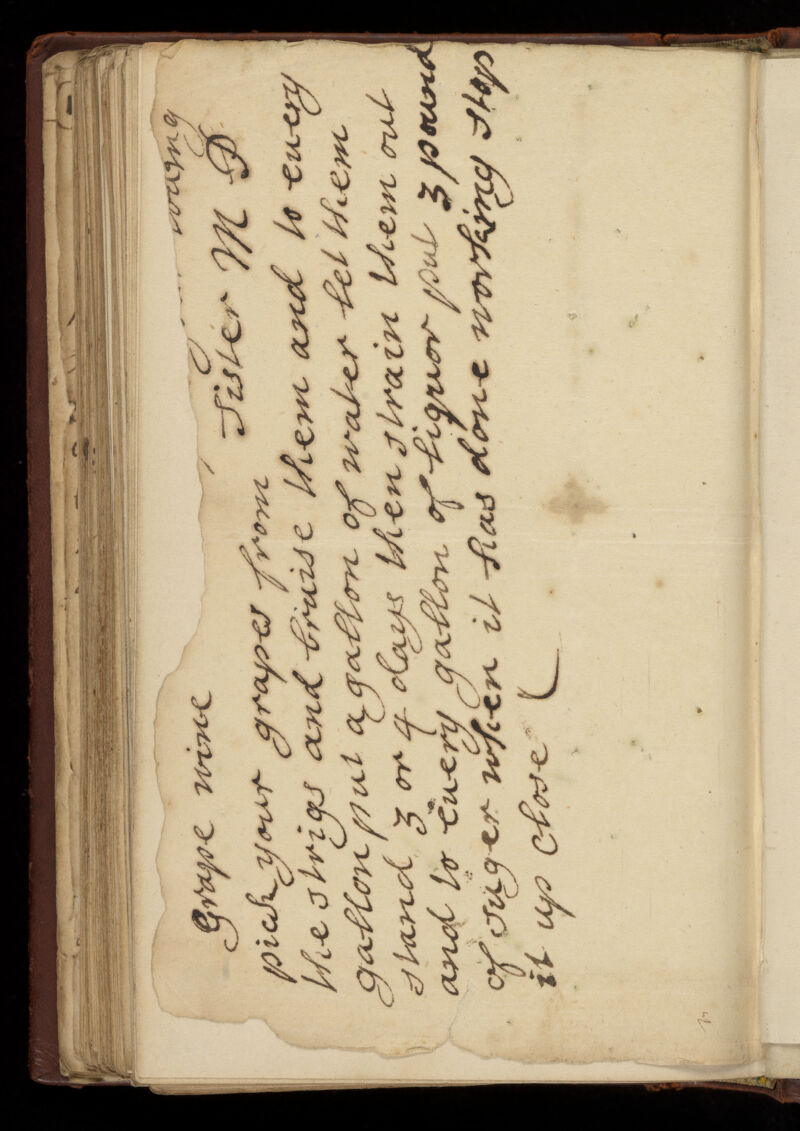 Grape wine
Sister M P
pick your grapes from
the strigs and bruise them and to euery
gallon put a gallon of water let them
stand 3 or 4 days then strain them out
and to euery gallon of liquor put 3 pound
of suger when it has done working stop
it up close